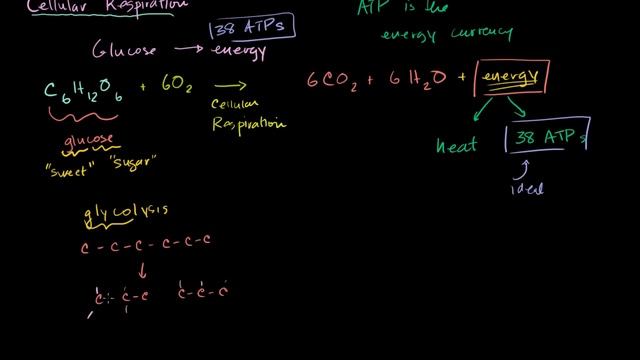 Cellular Respiration
Glucose → energy
38 ATPs
ATP is the
energy currency
C6H12O6 + 6O2 → 6CO2 + 6H2O + energy
Cellular
Respiration
glucose
"sweet" "sugar"
heat
38 ATPs
ideal
glycolysis
C - C - C - C - C - C
C - C - C C - C - C